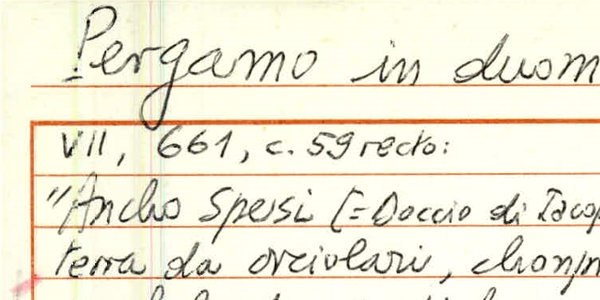 Pergamo in duom
VII, 661, c. 59 recto:
"Ancho spersi [=Doccio di Iacop
terra da orciolari, chonp